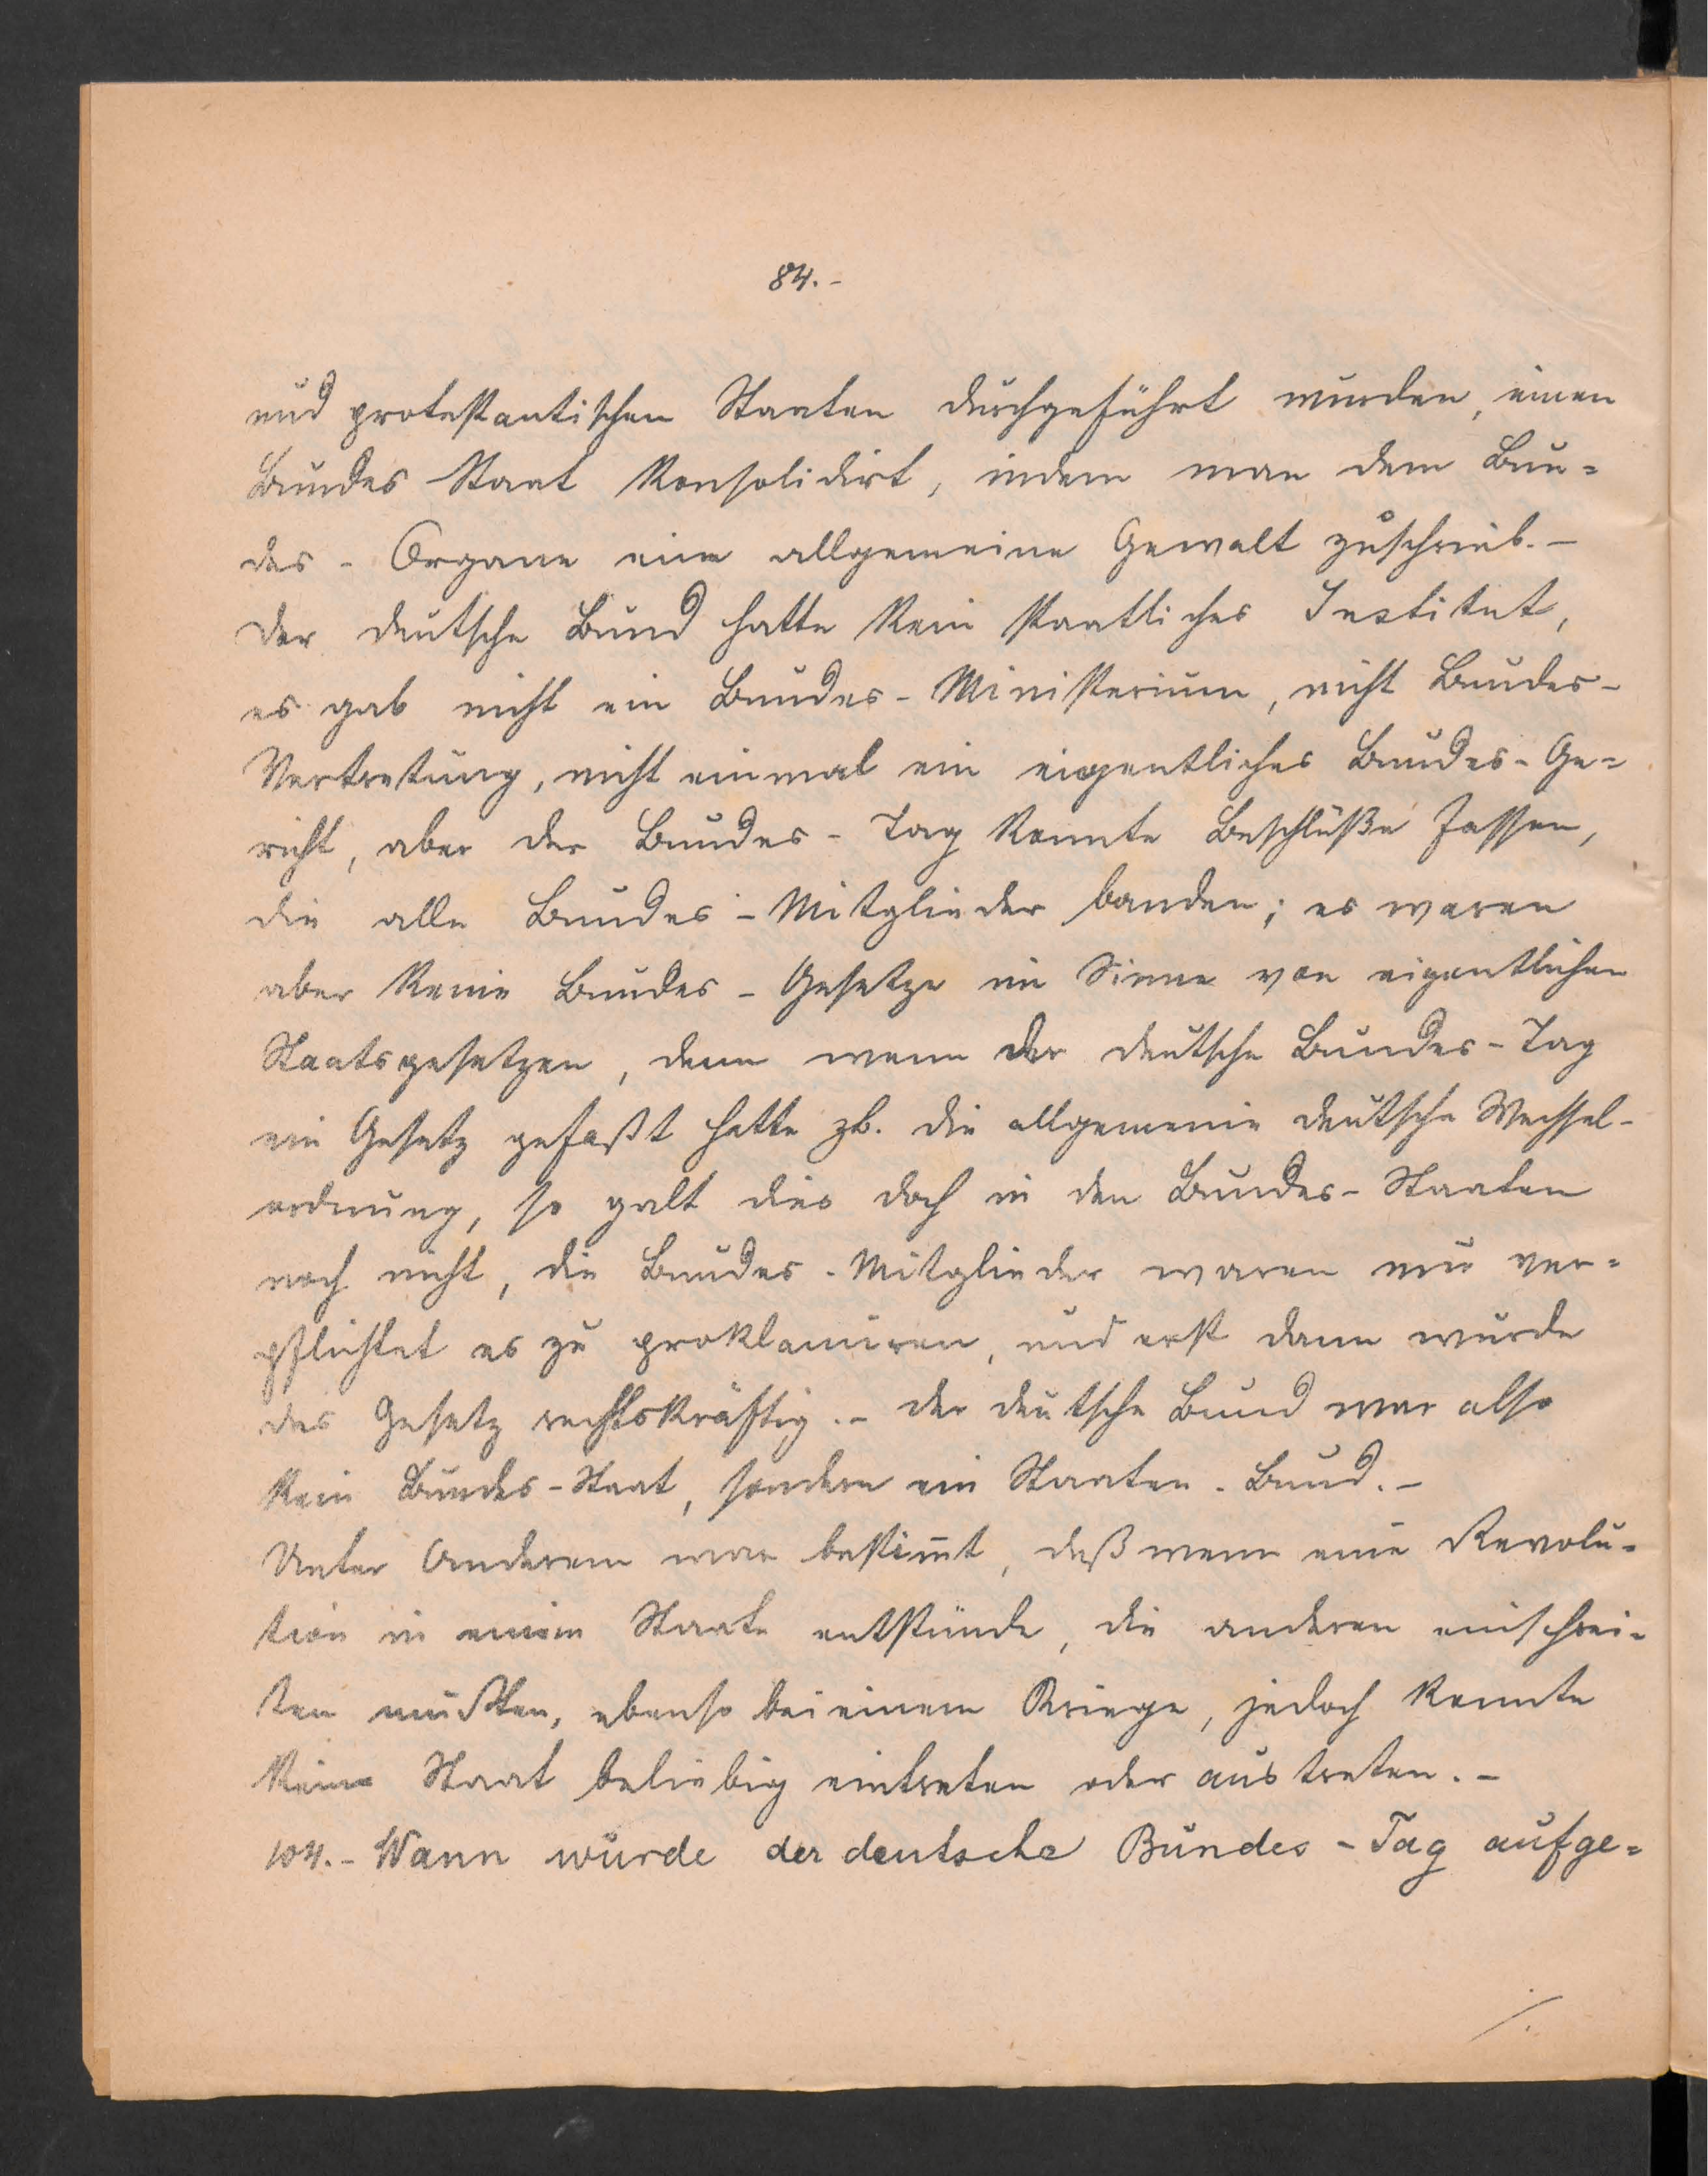 84.-
und protestantischen Staaten durchgeführt wurden, einen
Bundes Staat konsolidirt, indem man dem Bun=
des - Organe eine allgemeine Gewalt zuschrieb. -
Der deutsche Bund hatte kein staatliches Institut,
es gab nicht ein Bundes - Ministerium, nicht Bundes-
Vertretung, nicht einmal ein eigentliches Bundes - Ge=
richt, aber der Bundes - Tag konnte Beschlüße fassen,
die alle Bundes - Mitglieder banden; es waren
aber keine Bundes - Gesetze im Sinne von eigentlichen
Staatsgesetzen, denn wenn der deutsche Bundes - Tag
ein Gesetz gefaßt hatte zb. die allgemeine deutsche Wechsel-
ordnung, so galt dies doch in den Bundes - Staaten
noch nicht, die Bundes - Mitglieder waren nur ver=
pflichtet es zu proklamiren, und erst dann wurde
das Gesetz rechtskräftig. - der deutsche Bund war also
kein Bundes - Staat, sondern ein Staaten - Bund. -
Unter Anderem war bestim̅t, daß wenn eine Revolu=
tion in einem Staate entstünde, die anderen einschrei=
ten mußten, ebenso bei einem Kriege, jedoch konnte
kein Staat beliebig eintreten oder austreten. -
104. - Wann wurde der deutsche Bundes - Tag aufge=
./.